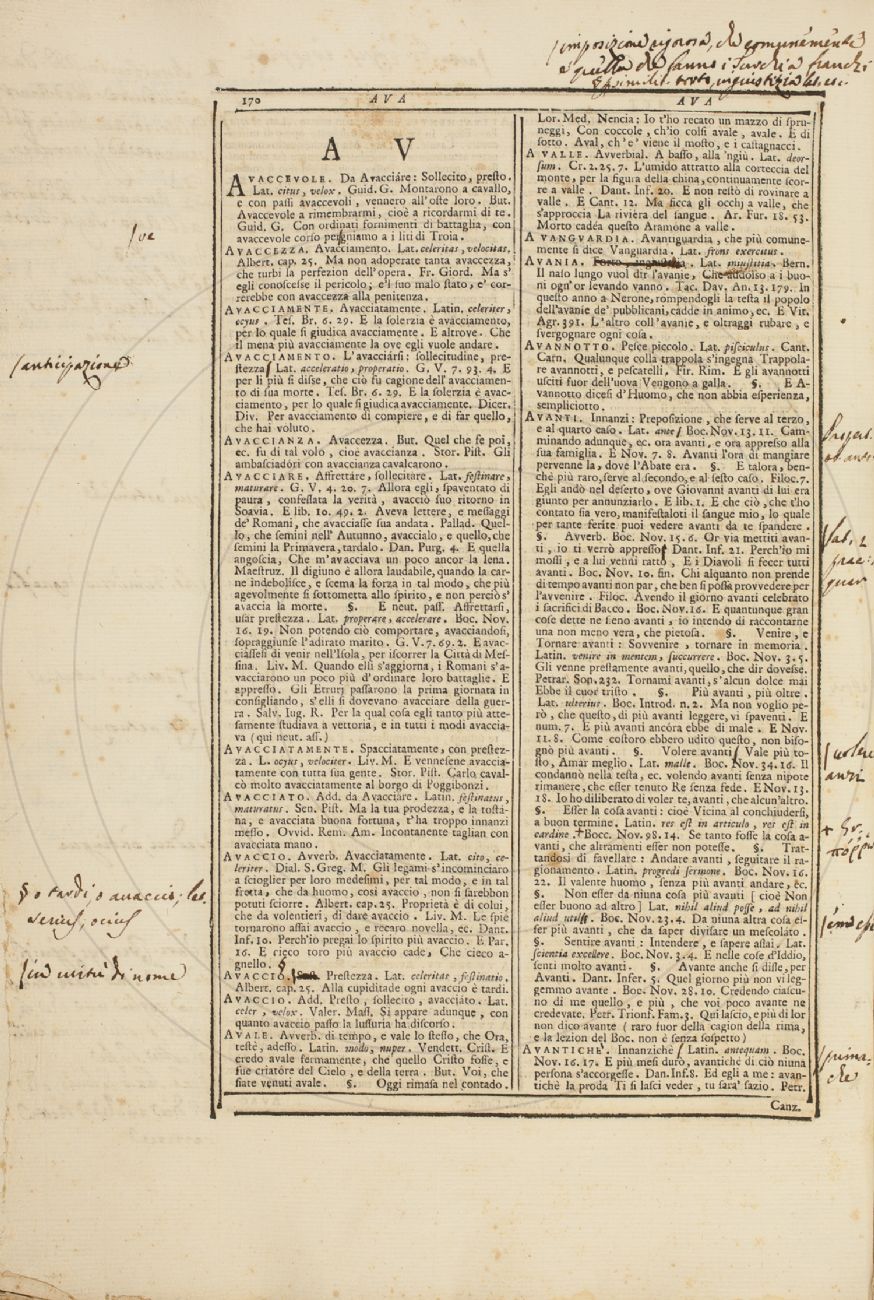 imposizione rigorosa, che comunemente
è quella che fanno i Turchi a' franchi
170
AVA
AVA
A V
AVACCEVOLE. Da Avacciáre: Sollecito, presto.
Lat. citus, velox. Guid. G. Montarono a cavallo,
e con passi avaccevoli, vennero all'oste loro. But.
Avaccevole a rimembrarmi, cioè a ricordarmi di te.
Guid. G. Con ordinati fornimenti di battaglia, con
avaccevole corso pergniamo a i liti di Troia.
AVACCEZZA. Avacciamento. Lat. celeritas, velocitas.
Albert. cap. 25. Ma non adoperate tanta avaccezza,
che turbi la perfezion dell'opera. Fr. Giord. Ma s'
egli conoscesse il pericolo; e'l suo malo stato, e' cor-
rerebbe con avaccezza alla penitenza.
AVACCIAMENTE. Avacciatamente. Latin. celeriter,
ocyus. Tes. Br. 6. 29. E la solerzia è avacciamento,
per lo quale si giudica avacciamente. E altrove. Che
ti mena più avacciamente la ove egli vuole andare.
AVACCIAMENTO. L'avacciársi: sollecitudine, pre-
stezza Lat. acceleratio, properatio. G. V. 7. 93. 4. E
per li più si disse, che ciò fu cagione dell'avacciamen-
to di sua morte. Tes. Br. 6. 29. E la solerzia è avac-
ciamento, per lo quale si giudica avacciamente. Dicer.
Div. Per avacciamento di compiere, e di far quello,
che hai voluto.
AVACCIANZA. Avaccezza. But. Quel che fe poi,
ec. fu di tal volo, cioè avaccianza. Stor. Pist. Gli
ambasciadóri con avaccianza cavalcarono.
AVACCIARE. Affrettáre, sollecitare. Lat. festinare,
maturare. G. V. 4. 20. 7. Allora egli, spaventato di
paura, confessata la verità, avacciò suo ritorno in
Soavia. E lib. 10. 49. 2. Aveva lettere, e messaggi
de' Romani, che avacciasse sua andata. Pallad. Quel-
lo, che semini nell'Autunno, avaccialo, e quello, che
semini la Primavera, tardalo. Dan. Purg. 4. E quella
angoscia, Che m'avacciava un poco ancor la lena.
Maestruz. Il digiuno è allora laudabile, quando la car-
ne indebolisce, e scema la forza in tal modo, che più
agevolmente si sottometta allo spirito, e non perciò s'
avaccia la morte. §. E neut. pass. Affrettarsi,
usár prestezza. Lat. properare, accelerare. Boc. Nov.
16. 19. Non potendo ciò comportare, avacciandosi,
sopraggiunse l'adirato marito. G. V. 7. 69. 2. E avac-
ciassesi di venir nell'Isola, per iscorrer la Città di Mes-
sina. Liv. M. Quando essi s'aggiorna, i Romani s'a-
vacciarono un poco più d'ordinare loro battaglie. E
appresso. Gli Etrurj passarono la prima giornata in
consigliando, s'elli si dovevano avacciare della guer-
ra. Salv. Iug. R. Per la qual cosa egli tanto più atte-
samente studiava a vettoria, e in tutti i modi avaccia-
va (qui neut. ass.)
AVACCIATAMENTE. Spacciatamente, con prestez-
za. L. ocyus, velociter. Liv. M. E vennesene avaccia-
tamente con tutta sua gente. Stor. Pist. Carlo caval-
cò molto avacciatamente al borgo di Poggibonzi.
AVACCIATO. Add. da Avacciáre. Latin. festinatus,
maturatus. Sen. Pist. Ma la tua prodezza, e la tosta-
na, e avacciata buona fortuna, t'ha troppo innanzi
messo. Ovvid. Rem. Am. Incontanente taglian con
avacciata mano.
AVACCIO. Avverb. Avacciatamente. Lat. cito, ce-
leriter. Dial. S. Greg. M. Gli legami s'incominciaro
a scioglier per loro medesimi, per tal modo, e in tal
frotta, che da huomo, così avaccio, non si sarebbon
potuti sciorre. Albert. cap. 25. Proprietà è di colui,
che da volentieri, di dare avaccio. Liv. M. Le spie
tornarono assai avaccio, e recaro novella, ec. Dant.
Inf. 10. Perch'io pregai lo spirito più avaccio. E Par.
16. E cieco toro più avaccio cade, Che cieco a-
gnello. §
AVACCIO. Prestezza. Lat. celeritas, festinatio.
Albert. cap. 25. Alla cupiditade ogni avaccio è tardi.
AVACCIO. Add. Presto, sollecito, avacciáto. Lat.
celer, velox. Valer. Mass. Si appare adunque, con
quanto avaccio passo la lussuria ha discorso.
AVALE. Avverb. di tempo, e vale lo stesso, che Ora,
testè, adesso. Latin. modo, nuper. Vendett. Crist. E
credo avale fermamente, che quello Cristo fosse, e
fue criatóre del Cielo, e della terra. But. Voi, che
siate venuti avale. §. Oggi rimasa nel contado.
Lor. Med. Nencia: Io t'ho recato un mazzo di spru-
neggi, Con coccole, ch'io colsi avale, avale. E di
sotto. Aval, ch'e' viene il mosto, e i castagnacci.
A VALLE. Avverbial. A basso, alla 'ngiù. Lat. deor-
sum. Cr. 2. 25. 7. L'umido attratto alla corteccia del
monte, per la figura della china, continuamente scor-
re a valle. Dant. Inf. 20. E non restò di rovinare a
valle. E Cant. 12. Ma ficca gli occhj a valle, che
s'approccia La riviéra del sangue. Ar. Fur. 18. 53.
Morto cadéa questo Aramone a valle.
A VANGUARDIA. Avantiguardia, che più comune-
mente si dice Vanguardia. Lat. frons exercitus.
AVANIA. Torto, ingiustizia. Lat. iniustitia. Bern.
Il naso lungo vuol dir l'avanie, Che addosso a i buo-
ni ogn'or levando vanno. Tac. Dav. An. 13. 179. In
questo anno a Nerone, rompendogli la testa il popolo
dell'avanie de' pubblicani, cadde in animo, ec. E Vit.
Agr. 391. L'altro coll'avanie, e oltraggi rubare, e
svergognare ogni cosa.
AVANNOTTO. Pesce piccolo. Lat. pisciculus. Cant.
Carn. Qualunque colla trappola s'ingegna Trappola-
re avannotti, e pescatelli. Fir. Rim. E gli avannotti
usciti fuor dell'uova Vengono a galla. §. E A-
vannotto dicesi d'Huomo, che non abbia esperienza,
sempliciotto.
AVANTI. Innanzi: Preposizione, che serve al terzo,
e al quarto caso. Lat. ante Boc. Nov. 13. 11. Cam-
minando adunque, ec. ora avanti, e ora appresso alla
sua famiglia. E Nov. 7. 8. Avanti l'ora di mangiare
pervenne là, dove l'Abate era. §. E talora, ben-
chè più raro, serve al secondo, e al sesto caso. Filoc. 7.
Egli andò nel deserto, ove Giovanni avanti di lui era
giunto per annunziarlo. E lib. 1. E che ciò, che t'ho
contato sia vero, manifestaloti il sangue mio, lo quale
per tante ferite puoi vedere avanti da te spandere.
§. Avverb. Boc. Nov. 15. 6. Or via mettiti avan-
ti, io ti verrò appresso Dant. Inf. 21. Perch'io mi
mossi, e a lui venni ratto, E i Diavoli si fecer tutti
avanti. Boc. Nov. 10. fin. Chi alquanto non prende
di tempo avanti non par, che ben si possa provvedere per
l'avvenire. Filoc. Avendo il giorno avanti celebrato
i sacrifici di Bacco. Boc. Nov. 16. E quantunque gran
cose dette ne sieno avanti, io intendo di raccontarne
una non meno vera, che pietosa. §. Venire, e
Tornare avanti: Sovvenire, tornare in memoria.
Latin. venire in mentem, succurrere. Boc. Nov. 3. 5.
Gli venne prestamente avanti, quello, che dir dovesse.
Petrar. Son. 232. Tornami avanti, s'alcun dolce mai
Ebbe il cuor tristo. §. Più avanti, più oltre.
Lat. ulterius. Boc. Introd. n. 2. Ma non voglio pe-
rò, che questo, di più avanti leggere, vi spaventi. E
num. 7. E più avanti ancóra ebbe di male. E Nov.
11. 8. Come costoro ebbero udito questo, non biso-
gnò più avanti. §. Volere avanti Vale più to-
sto, Amár meglio. Lat. malle. Boc. Nov. 34. 16. Il
condannò nella testa, ec. volendo avanti senza nipote
rimanere, che esser tenuto Re senza fede. E Nov. 13.
18. Io ho diliberato di voler te, avanti, che alcun'altro.
§. Esser la cosa avanti: cioè Vicina al conchiudersi,
a buon termine. Latin. res est in articulo, res est in
cardine + Bocc. Nov. 98. 14. Se tanto fosse la cosa a-
vanti, che altramenti esser non potesse. §. Trat-
tandosi di favellare: Andare avanti, seguitare il ra-
gionamento. Latin. progredi sermone. Boc. Nov. 16.
22. Il valente huomo, senza più avanti andare, &c.
§. Non esser da niuna cosa più avanti [cioè Non
esser buono ad altro] Lat. nihil aliud posse, ad nihil
aliud Boc. Nov. 23. 4. Da niuna altra cosa es-
ser più avanti, che da saper divisare un mescoláto.
§. Sentire avanti: Intendere, e sapere assai. Lat.
scientia excellere. Boc. Nov. 3. 4. E nelle cose d'Iddio,
senti molto avanti. §. Avante anche si disse, per
Avanti. Dant. Infer. 5. Quel giorno più non vi leg-
gemmo avante. Boc. Nov. 28. 10. Credendo ciascu-
no di me quello, e più, che voi poco avante ne
credevate. Petr. Trionf. Fam. 3. Qui lascio, e più di lor
non dico avante (raro fuor della cagion della rima,
e la lezion del Boc. non è senza sospetto)
AVANTICHÈ. Innanzichè Latin. antequam. Boc.
Nov. 16. 17. E più mesi durò, avantichè di ciò niuna
persona s'accorgesse. Dan. Inf. 8. Ed egli a me: avan-
tichè la proda Ti si lasci veder, tu sara' sazio. Petr.
Canz.
anticipazione
§ o tardi, o avaccio; lat.
serius, ocius
in virtù di nome
volere
anzi
+ Gr.
prima-
che